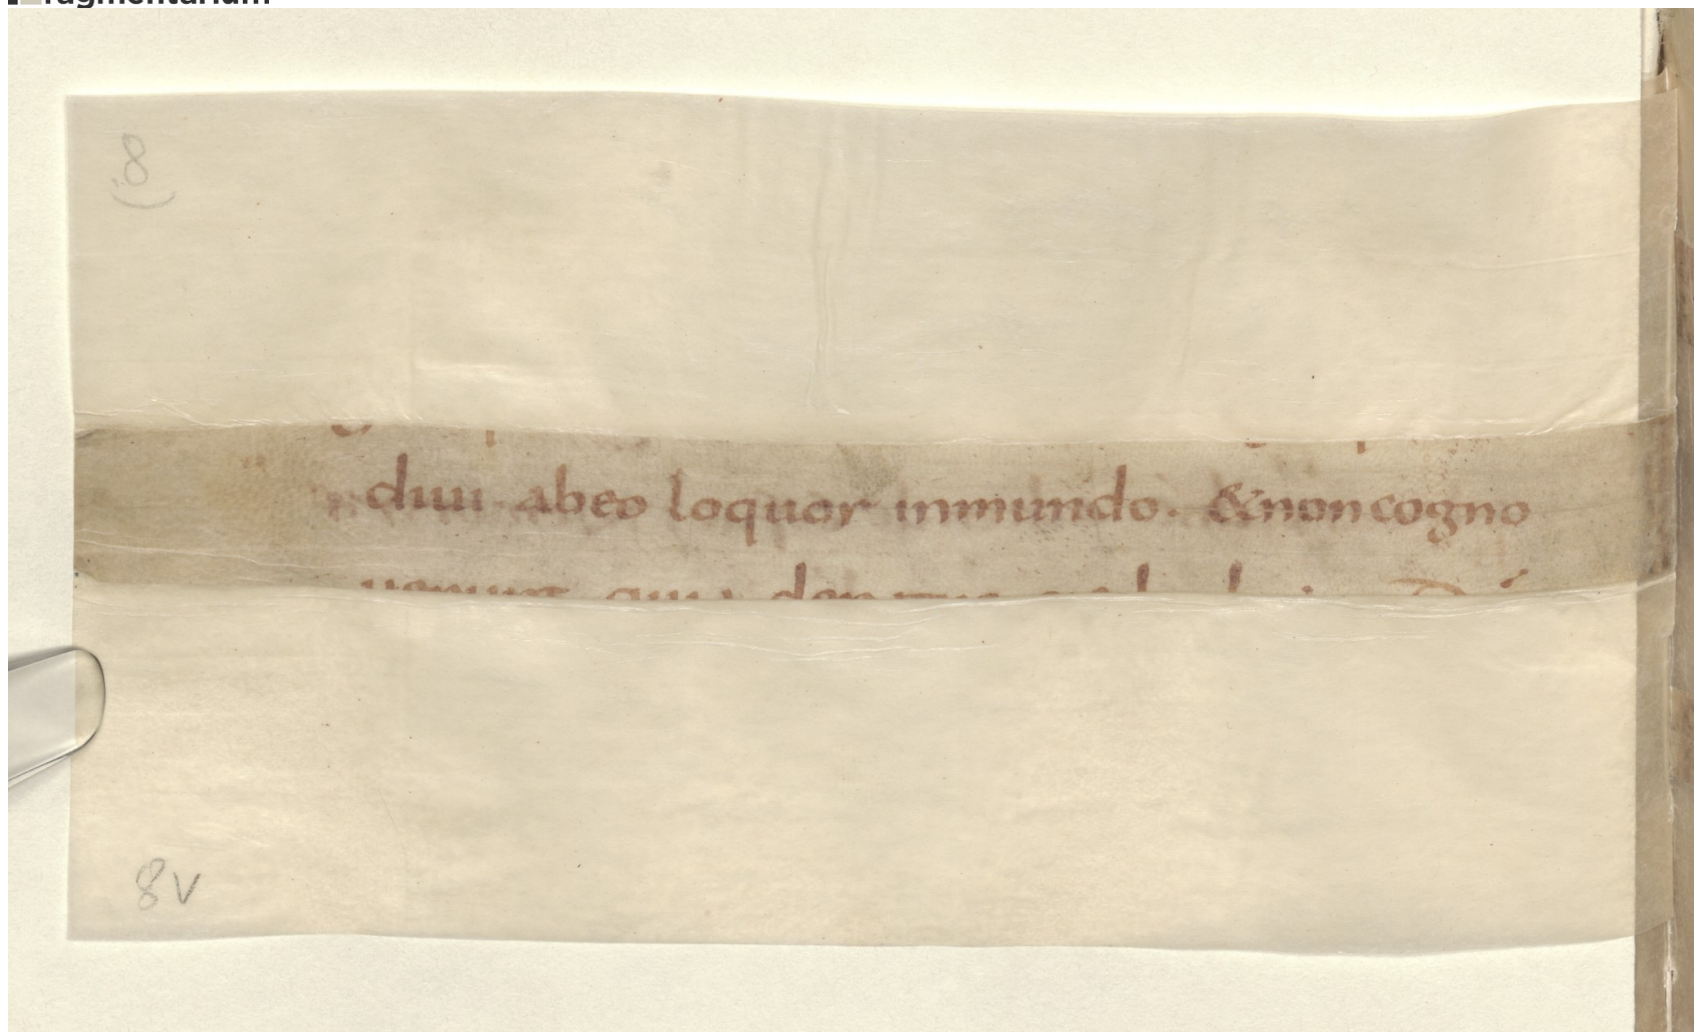 ragmentarium
8
diui abeo loquor inmundo. &noncogno
8v